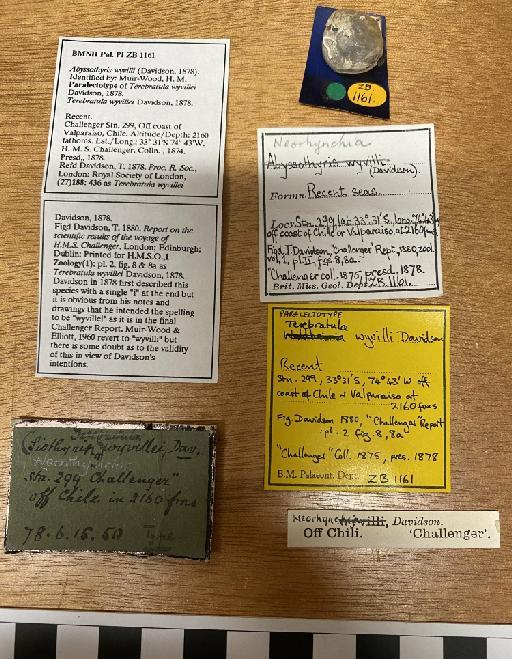 BMNH Pal. PI ZB 1161
Abyssothyris wyvilli (Davidson, 1878).
Identified by: Muir-Wood, H. M.
Paralectotype of Terebratula wyvillei
Davidson, 1878.
Terebratula wyvillei Davidson, 1878.
Recent.
Challenger Stn. 299, Off coast of
Valparaiso, Chile. Altitude/Depth: 2160
fathoms. Lat./Long.: 33° 31'S 74° 43'W.
H. M. S. Challenger. Colln., 1874.
Presd., 1878.
Refd Davidson, T. 1878. Proc. R. Soc.,
London: Royal Society of London,
(27)188: 436 as Terebratula wyvillei
Davidson, 1878.
Figd Davidson, T. 1880. Report on the
scientific results of the voyage of
H.M.S. Challenger. London; Edinburgh;
Dublin: Printed for H.M.S.O.,1
Zoology(1): pl. 2, fig. 8 & 8a as
Terebratula wyvillei Davidson, 1878.
Davidson in 1878 first described this
species with a single "i" at the end but
it is obvious from his notes and
drawings that he intended the spelling
to be "wyvillei" as it is in the final
Challenger Report. Muir-Wood &
Elliott, 1960 revert to "wyvilli" but
there is some doubt as to the validity
of this in view of Davidson's
intentions.
ZB
1161.
Neorhynchia
Abyssothyris wyvilli
(Davidson).
Form Recent seas.
Loc. Stn. 299, lat. 33° 31' S., long. 74° 43' W
off coast of Chile or Valparaiso at 2160 fms
Figd. T. Davidson, 'Challenger' Rept, 1880, Zool.
vol. 1, pl. II. figs 8, 8a.
"Challenger coll. 1875, presd. 1878.
Brit. Mus. Geol. Dept. ZB 1161.
PARALECTOTYPE
Terebratula
wyvilli Davidson
Recent
Stn. 299, 33°31'S, 74°43'W off
coast of Chile or Valparaiso at
2160 fms
Fig. Davidson 1880, "Challenger" Report
pl. 2 fig. 8, 8a
"Challenger" Coll. 1875, pres. 1878
B.M. Palaeont. Dept. ZB 1161
wyvillei, Dav.
Neorhynchia
Stn. 299 "Challenger"
off Chile in 2160 fms
78.6.15.50 Type
Neorhync wyvilli, Davidson.
Off Chili. 'Challenger'.